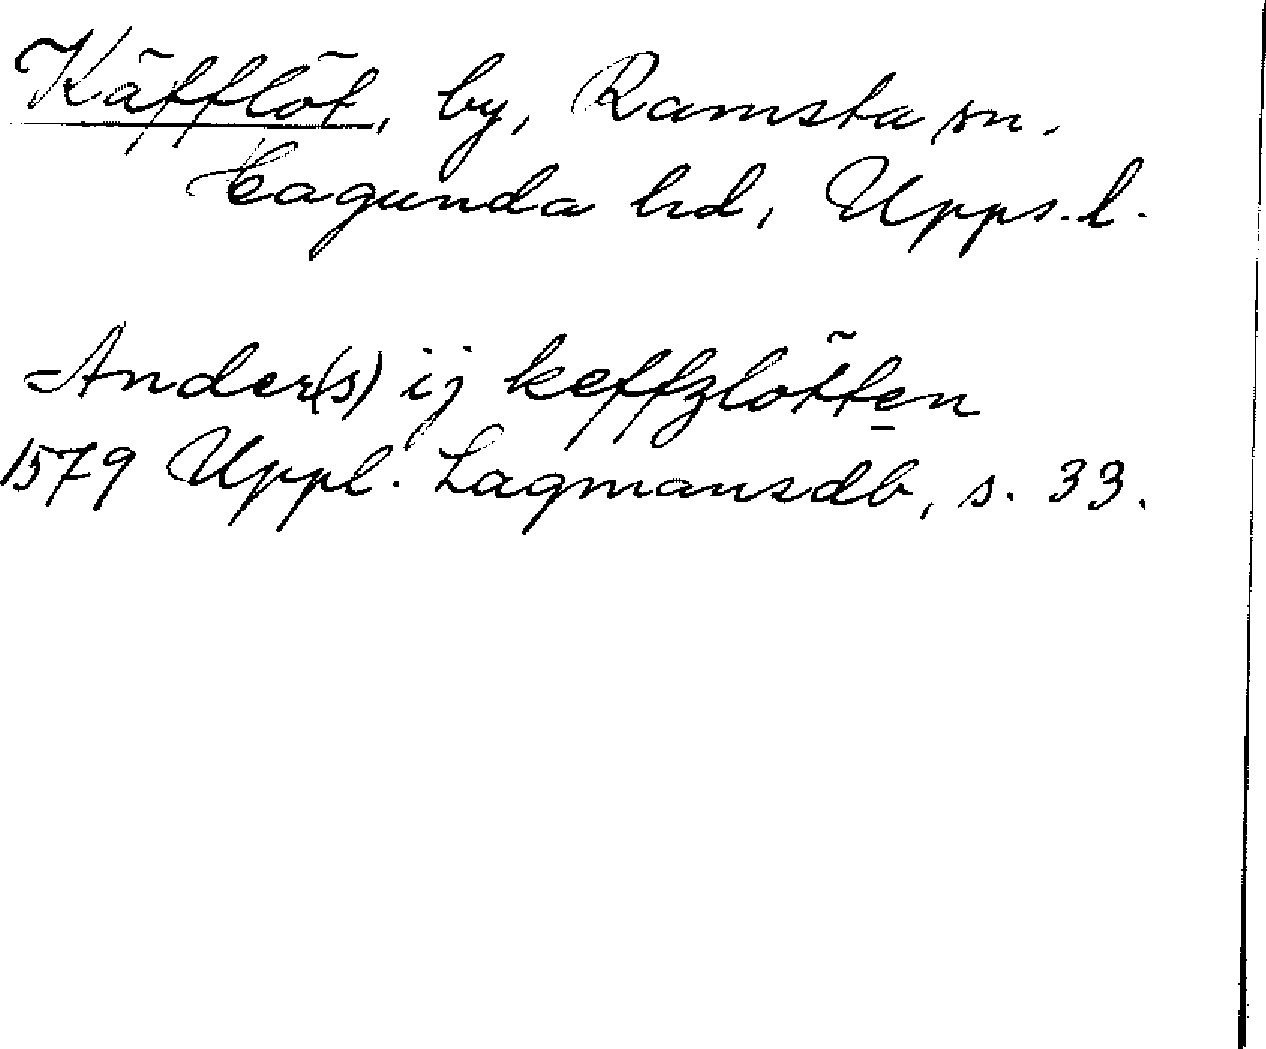 Käfflöt, by, Ramsta sn.
Lagunda hd, Upps. l.
Ander(s) ij keffzlötten
1579 Uppl. Lagmansdb, s. 33.